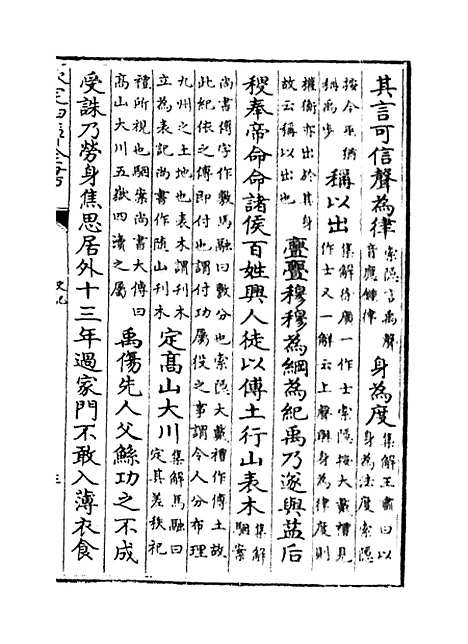 其言可信聲為律索隱言禹聲音應鍾律身為度集解王肅曰以身為法度索隱
按今巫猶稱禹步稱以出集解徐廣一作士索隱按大戴禮見作士又一解云上聲與身為律度則
權衡亦出於其身故云稱以出也亹亹穆穆為綱為紀禹乃遂與益后
稷奉帝命命諸侯百姓興人徒以傅土行山表木集解駰案
尚書傅字作敷馬融曰敷分也索隱大戴禮作傅土故此紀依之傅即付也謂付功屬役之事謂令人分布理
九州之土地也表木謂刊木立為表記尚書作隨山刊木定高山大川集解馬融曰定其差秩祀
禮所視也駰案尚書大傳曰高山大川五嶽四瀆之屬禹傷先人父鯀功之不成
受誅乃勞身焦思居外十三年過家門不敢入薄衣食
欽定四庫全書
史記
三